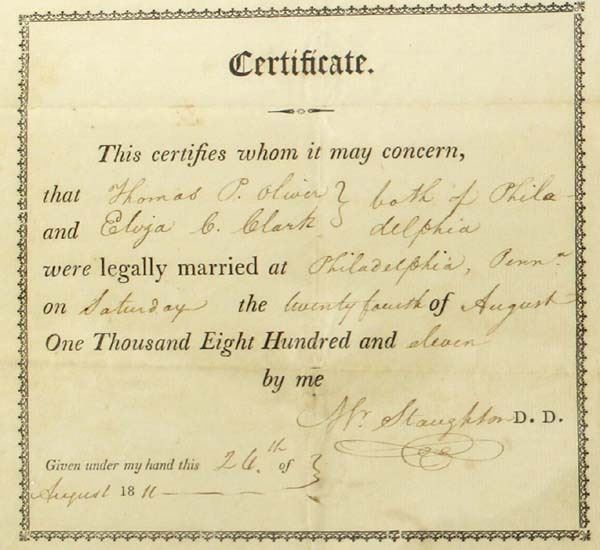 Certificate.
This certifies whom it may concern,
that Thomas P. Oliver } both of Phila-
and Eliza C. Clark } delphia
were legally married at Philadelphia, Penna
on Saturday the twenty fourth of August
One Thousand Eight Hundred and eleven
by me
Wm. Staughton D. D.
Given under my hand this 26.th of }
August 1811